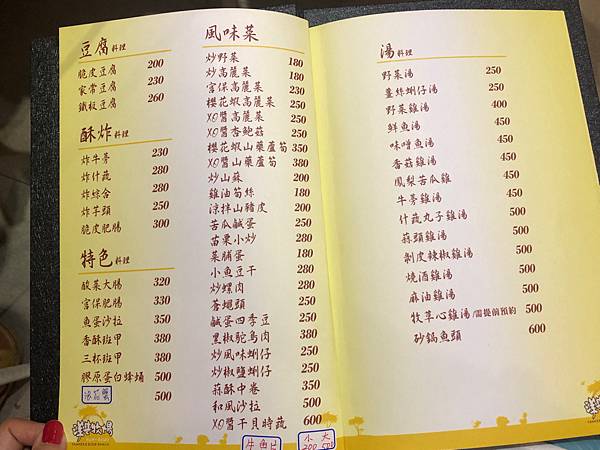 豆腐 料理
脆皮豆腐 200
家常豆腐 230
鐵板豆腐 260
酥炸 料理
炸牛蒡 230
炸什蔬 280
炸綜合 280
炸芋頭 250
脆皮肥腸 300
特色 料理
酸菜大腸 320
宮保肥腸 330
魚蛋沙拉 350
香酥斑甲 380
三杯斑甲 380
膠原蛋白蜂蛹 500
500
風味菜
炒野菜 180
炒高麗菜 180
宮保高麗菜 250
櫻花蝦高麗菜 250
XO醬高麗菜 250
XO醬杏鮑菇 250
櫻花蝦山藥蘆筍 350
XO醬山藥蘆筍 380
炒山蘇 200
雞油筍絲 180
涼拌山豬皮 200
苦瓜鹹蛋 250
苗栗小炒 280
菜脯蛋 180
小魚豆干 280
炒螺肉 280
蒼蠅頭 250
鹹蛋四季豆 250
黑椒鴕鳥肉 380
炒風味蜊仔 250
炒椒鹽蜊仔 280
蒜酥中卷 350
和風沙拉 250
XO醬干貝時蔬 600
小 大
湯 料理
野菜湯 250
薑絲蜊仔湯 250
野菜雞湯 400
鮮魚湯 450
味噌魚湯 450
香菇雞湯 450
鳳梨苦瓜雞 450
牛蒡雞湯 450
什蔬丸子雞湯 500
蒜頭雞湯 500
剝皮辣椒雞湯 500
燒酒雞湯 500
麻油雞湯 500
牧草心雞湯/需提前預約 500
砂鍋魚頭 600